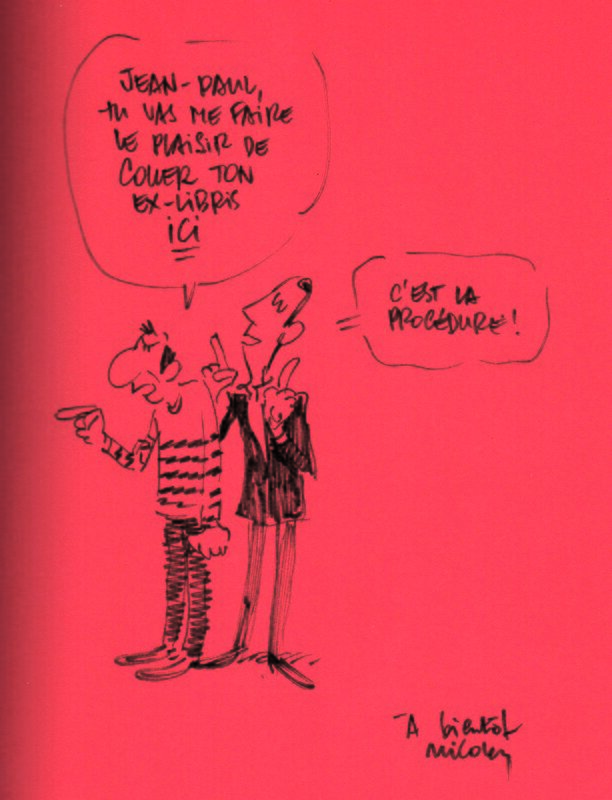 JEAN-PAUL,
tu VAS ME FAIRE
LE PLAISIR DE
COLLER TON
EX-LIBRIS
ICI
C'EST LA
PROCÉDURE !
A bientôt